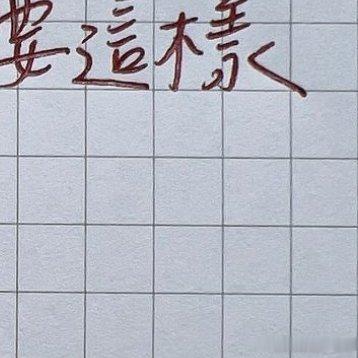 要這樣